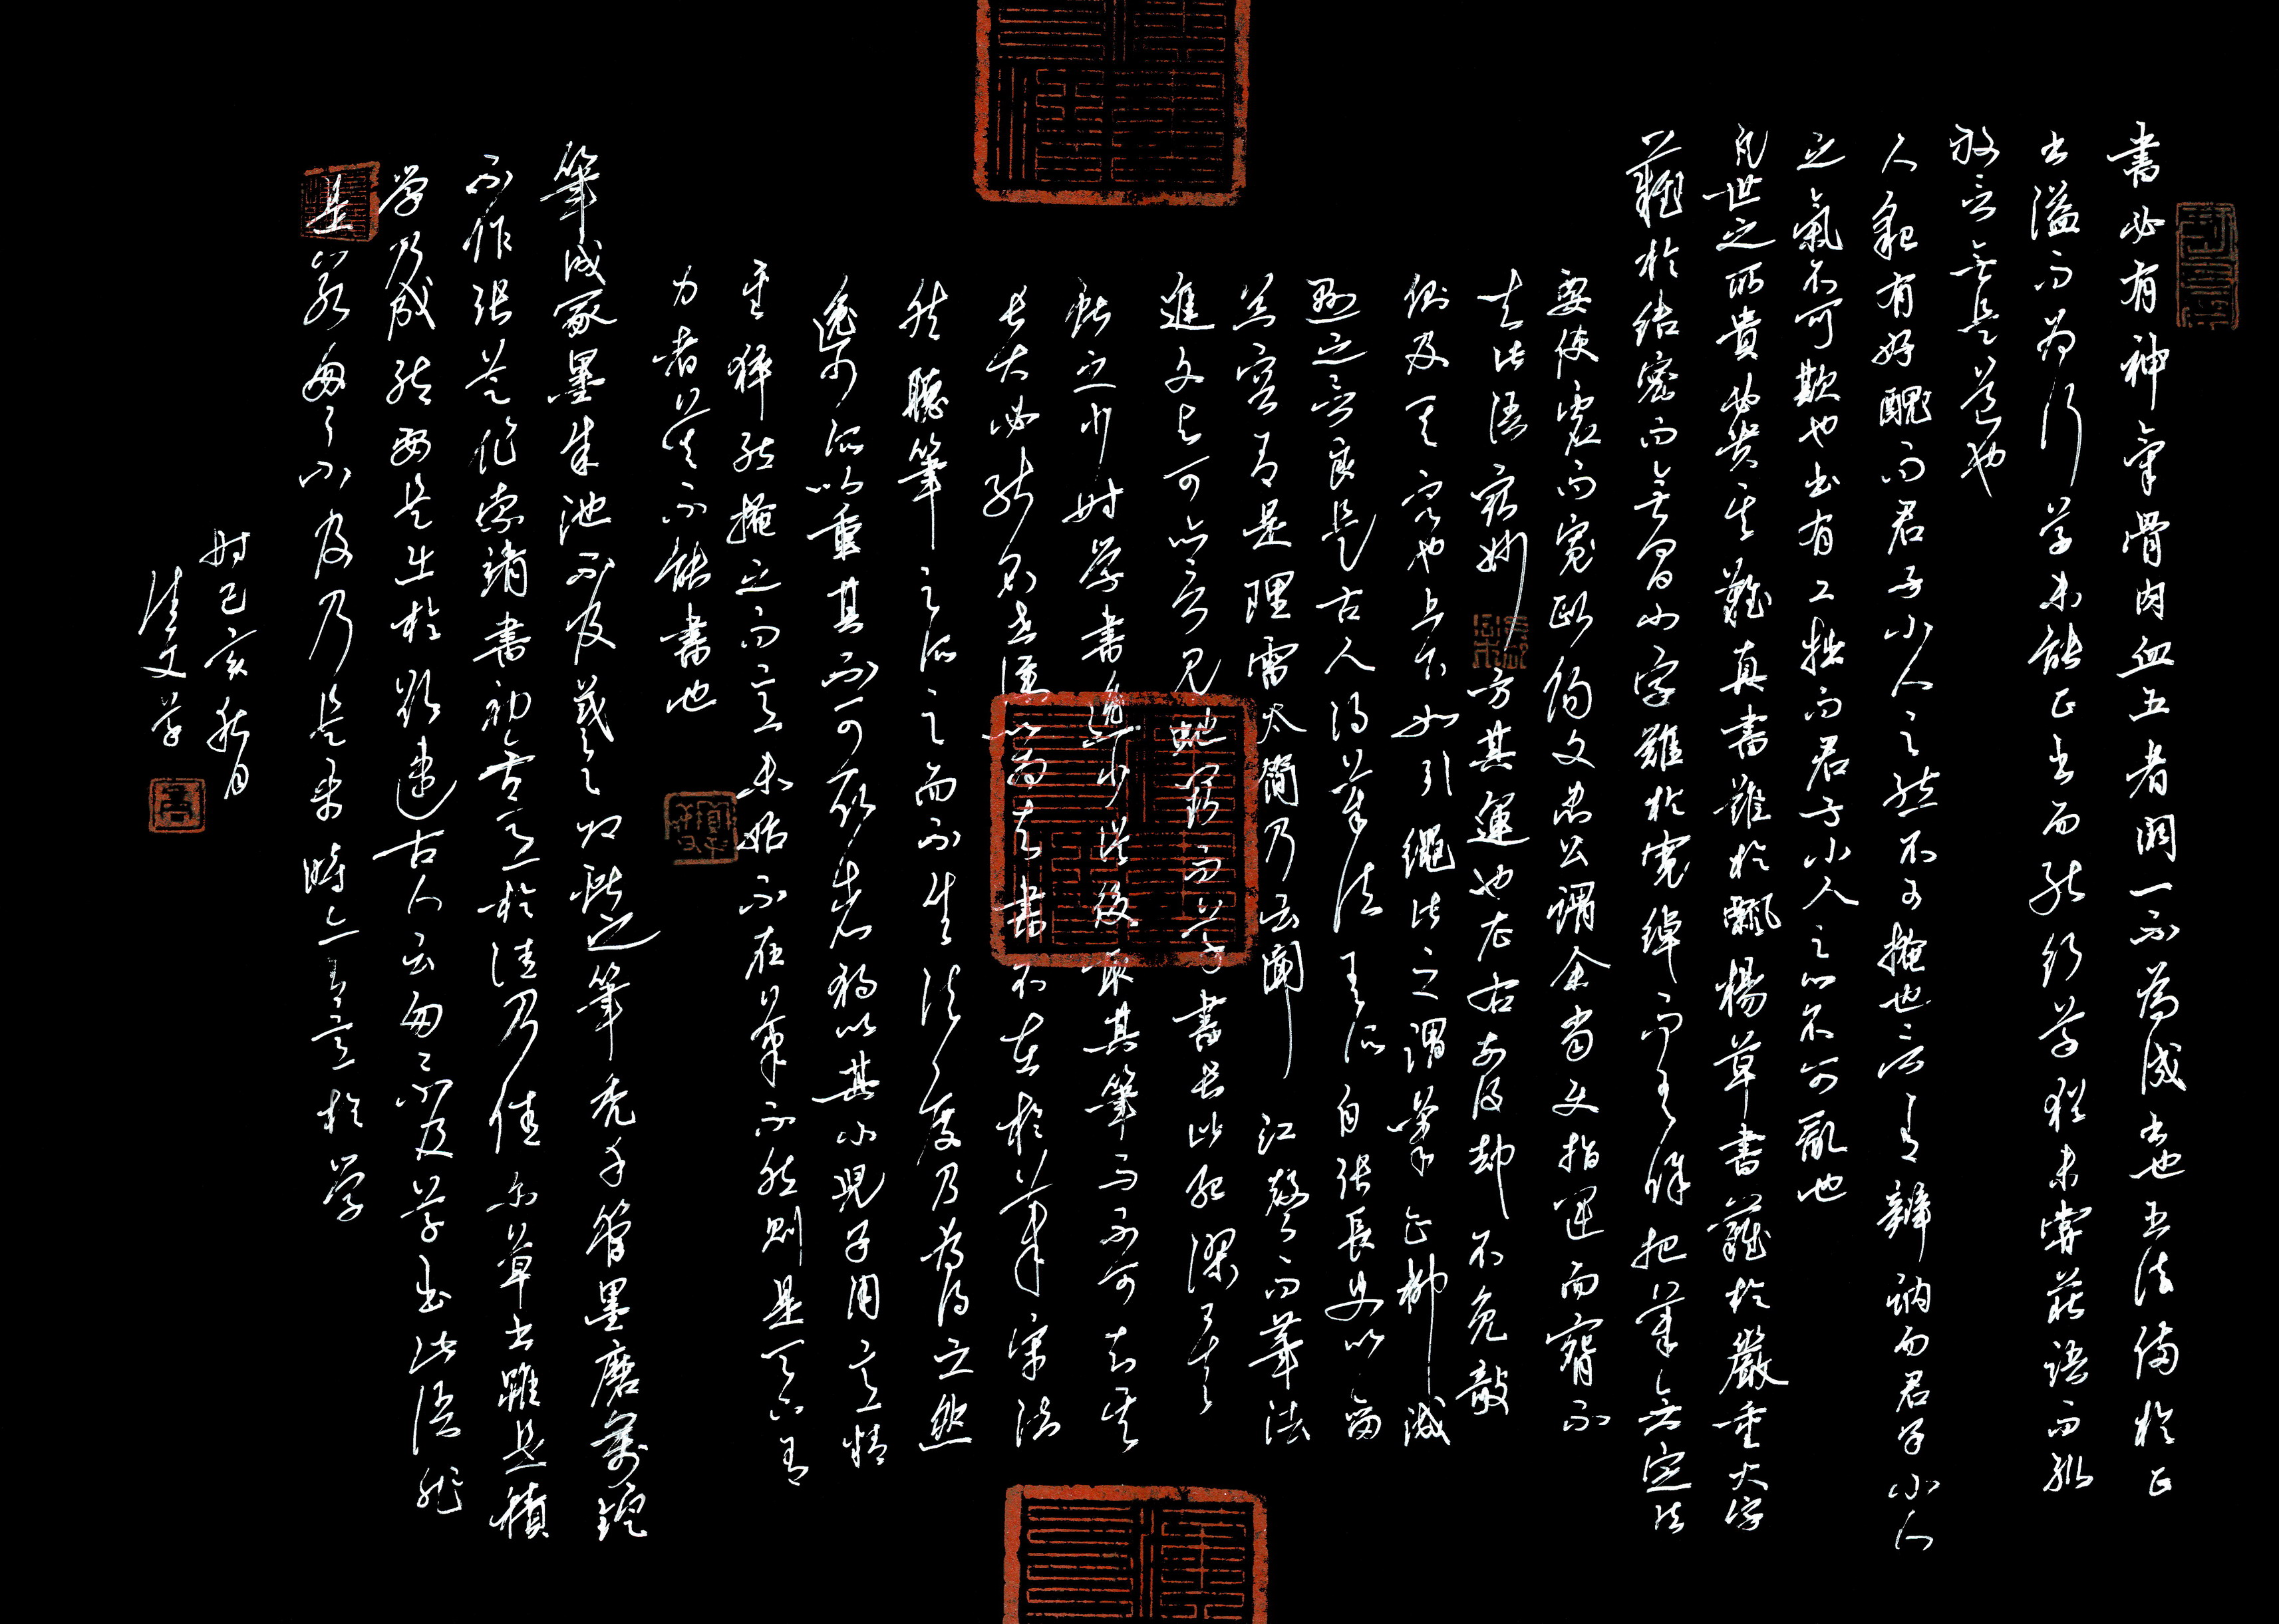 書必有神氣骨肉血五者闕一不為成書也書法備於正
書溢而為行草未能正書而能行草猶未嘗莊語而輒
放言無是道也
人貌有好醜而君子小人之態不可掩也言有辯訥而君子小人
之氣不可欺也書有工拙而君子小人之心不可亂也
凡世之所貴必貴其難真書難於飄揚草書難於嚴重大字
難於結密而無間小字難於寬綽而有餘把筆無定法
要使虛而寬歐陽文忠公謂余當使指運而腕不
知此語最妙方其運也左右前後却不免欹
側及其定也上下如引繩此之謂筆正柳誠
懸之言良是古人得筆法有所自張長史以劍
器容有是理雷太簡乃云聞江聲而筆法
進文與可亦言見蛇鬥而草書長此殆謬矣
獻之少時學書逸少從後取其筆而不可知其
長大必能名世僕以為知書不在於筆牢浩
然聽筆之所之而不失法度乃為得之然
逸少所以重其不可取者獨以其小兒子用意精
至猝然掩之而意未始不在筆不然則是天下有
力者莫不能書也
筆成冢墨成池不及羲之即獻之筆禿千管墨磨萬鋌
不作張芝作索靖書初無意於佳乃佳爾草書雖是積
學乃成然要是出於欲速古人云匆匆不及草書此語非
是若匆匆不及乃是平時亦有意於學
時己亥秋月